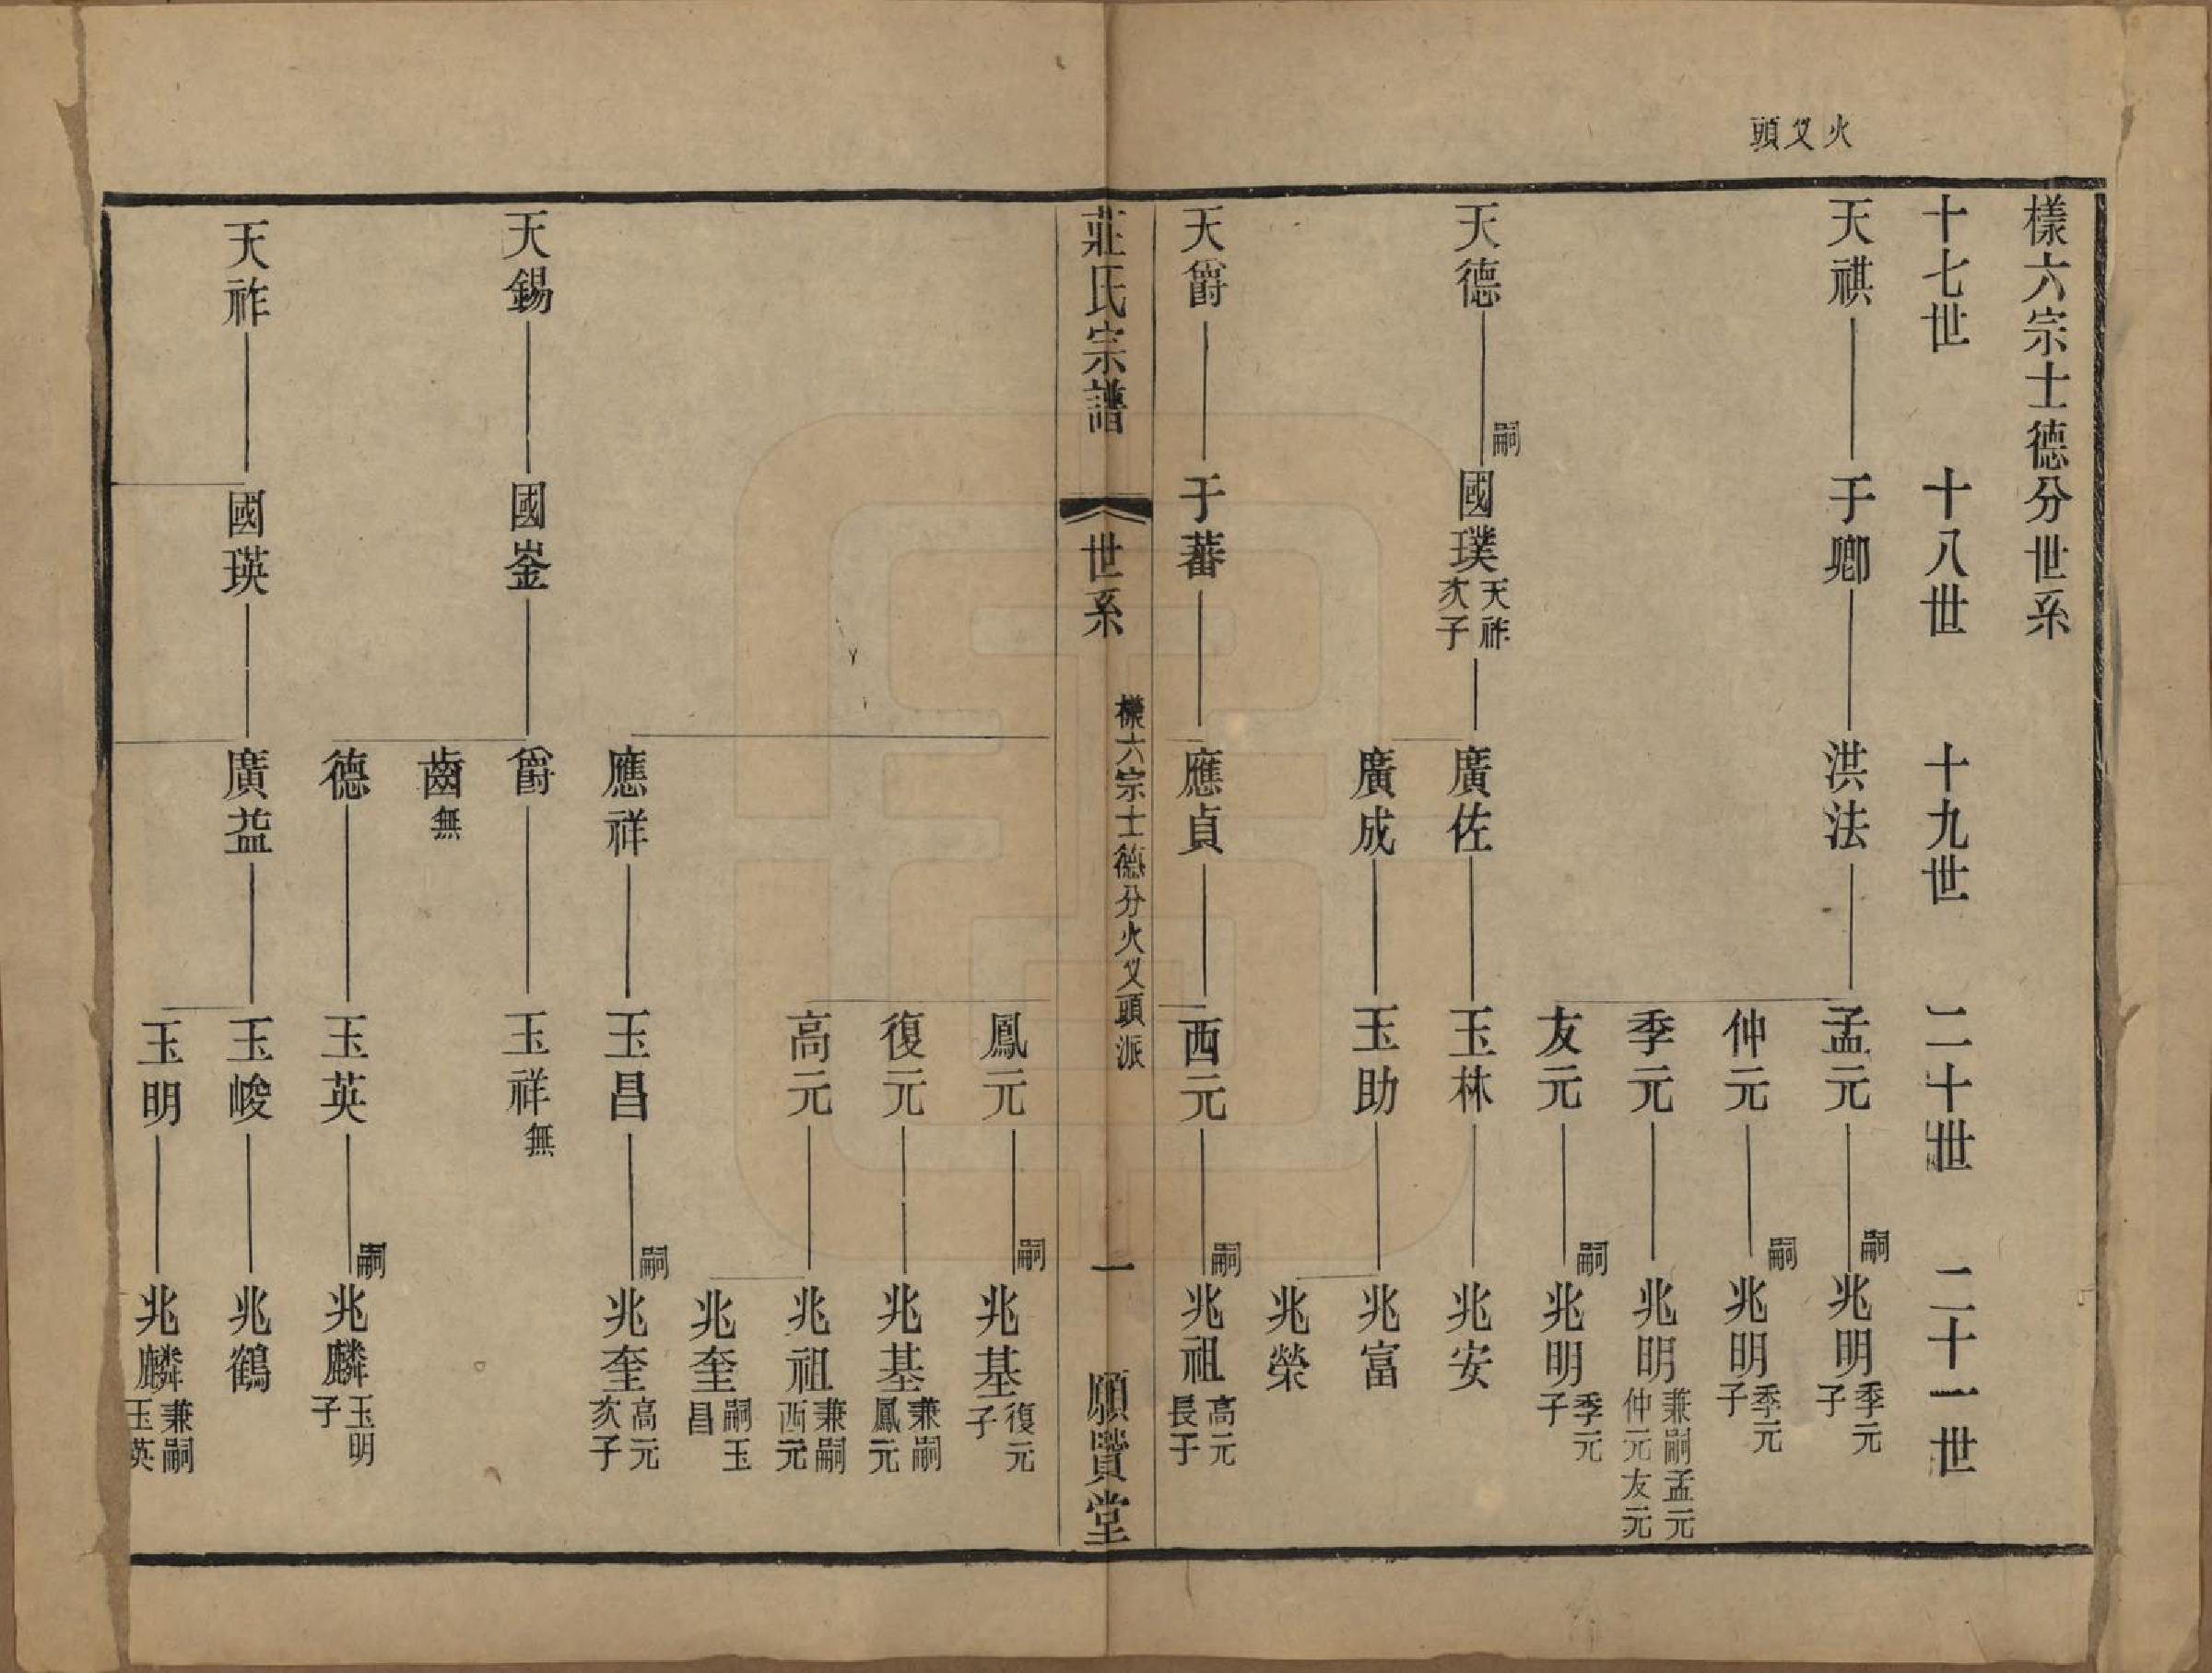 火叉頭
樣六宗士德分世系
十七世 十八世 十九世 二十世 二十一世
天祺 于卿 洪法 孟元 嗣 兆明 季元子
仲元 嗣 兆明 季元子
季元 兆明 兼嗣孟元仲元友元
友元 嗣 兆明 季元子
天德 嗣 國璞 天祚次子 廣佐 玉林 兆安
廣成 玉助 兆富
兆榮
天爵 于蕃 應貞 西元 嗣 兆祖 高元長子
莊氏宗譜 世系 樣六宗士德分火叉頭派 一 願賢堂
鳳元 嗣 兆基 復元子
復元 兆基 兼嗣鳳元
高元 兆祖 兼嗣西元
兆奎 嗣玉昌
應祥 玉昌 嗣 兆奎 高元次子
天錫 國崟 爵 玉祥 無
齒 無
德 玉英 嗣 兆麟 玉明子
天祚 國瑛 廣益 玉峻 兆鶴
玉明 兆麟 兼嗣玉英